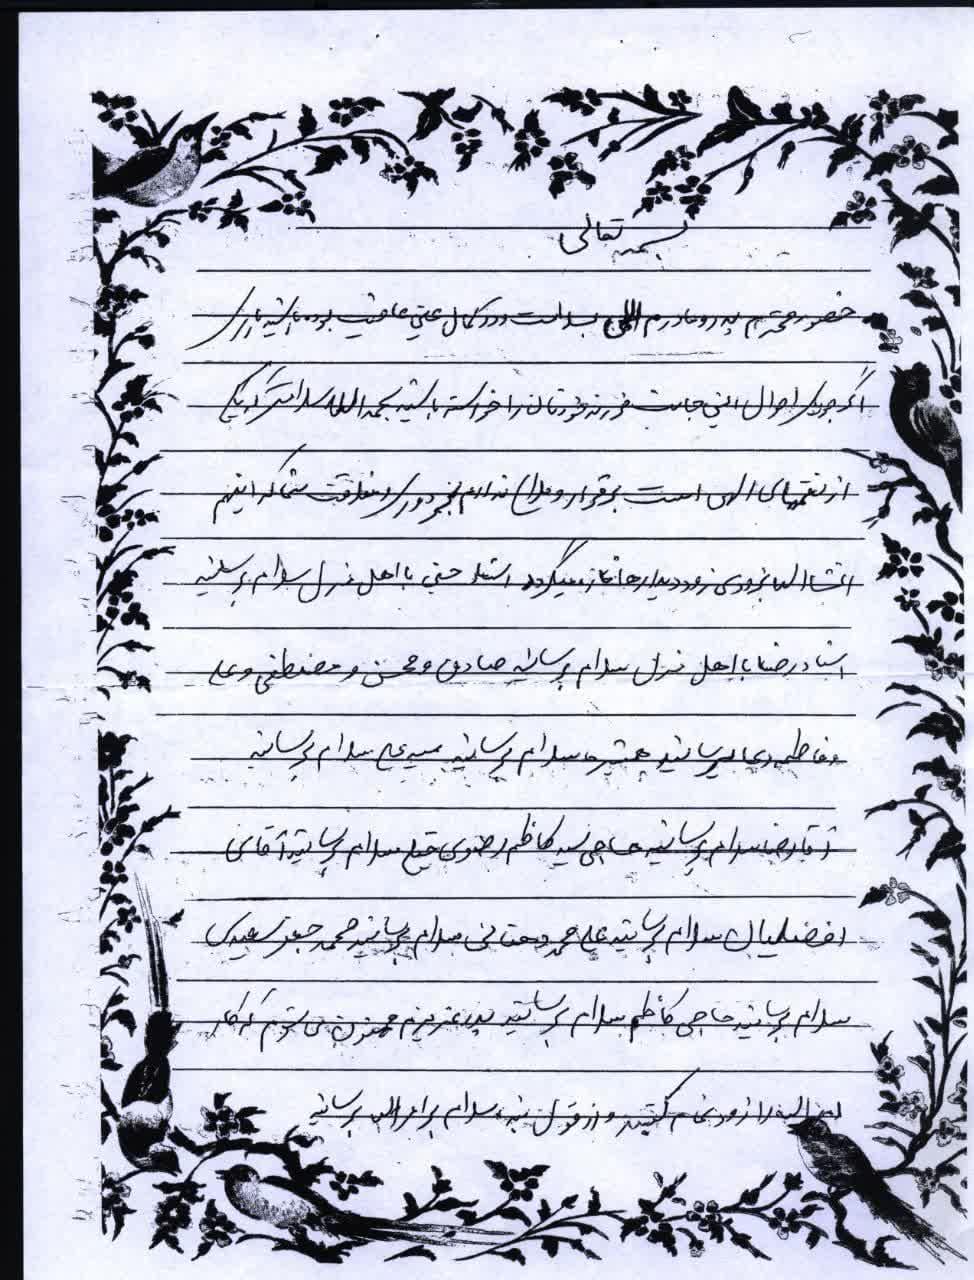 بسمه تعالی
حضور محترم پدر و مادرم سلامت و در کمال عافیت بوده باشید باری
اگر جویای احوال اینجانب فرزند خودتان را خواسته باشید بحمدالله سلامتی که یکی
از نعمتهای الهی است برقرار و ملالی ندارم بجز دوری و مفارقت شما که اینهم
انشاالله بزودی زود دیدارها تازه میگردد استاد حسن با اهل منزل سلام برسانید
استاد رضا با اهل منزل سلام برسانید صادق و محسن و مصطفی و علی
و فاطمه دعا برسانید همشیره سلام برسانید سید علی سلام برسانید
آقا رضا سلام برسانید حاجی سید کاظم رضوی خیلی سلام برسانید آقای
افضلیان سلام برسانید علی محمد سلام برسانید محمد جعفر سعیدی
سلام برسانید حاجی کاظم سلام برسانید پدر عزیزم ممنون می شوم که کار
را زود تمام کنید و از قول بنده سلام برسانید